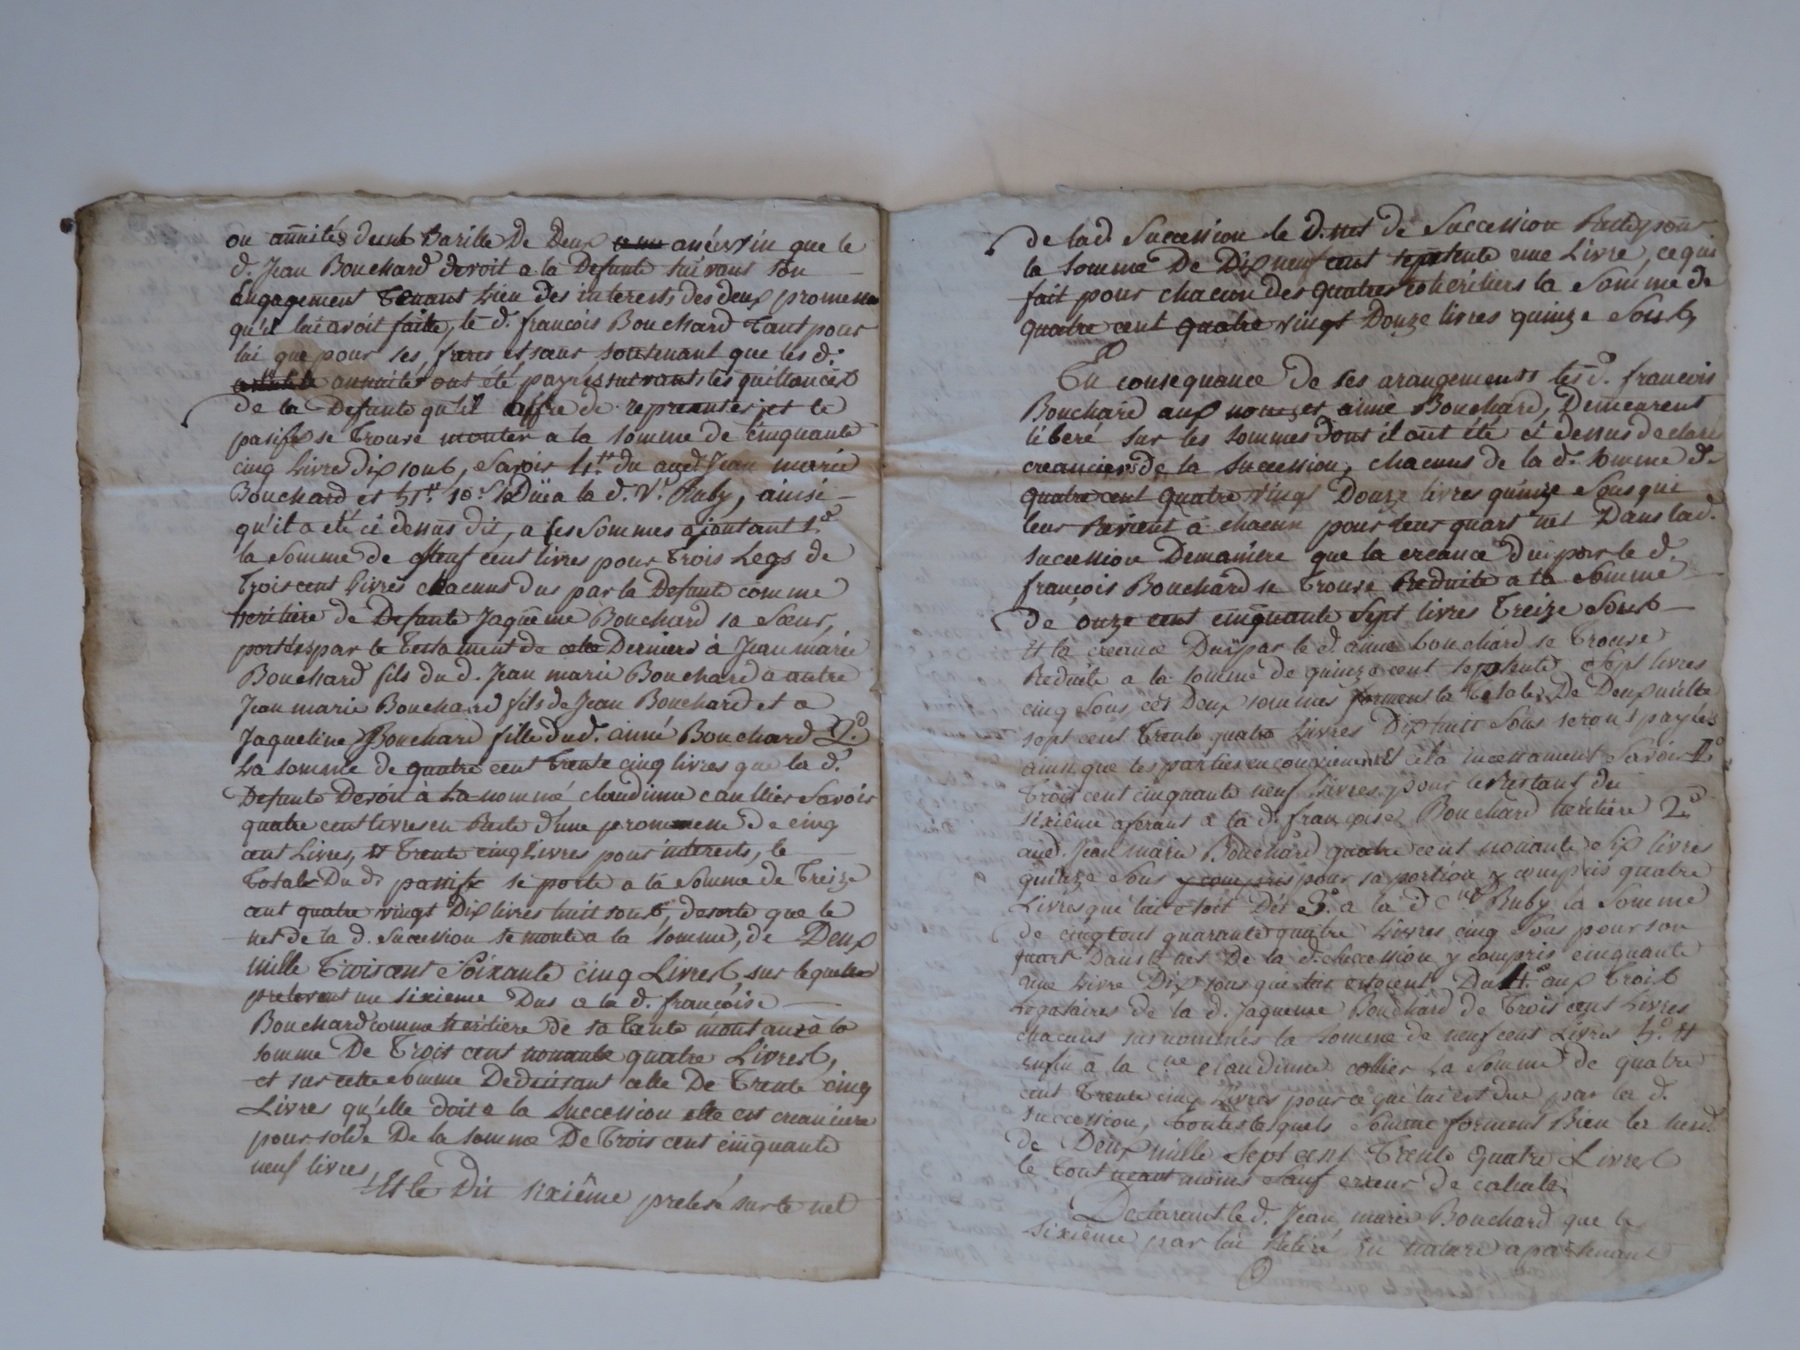 ou annuités d'un Barille De Deux année vin que le
d. Jean Bouchard devoit a la Defunte suivant son
Engagement tenant Lieu des interets des deux promesse
qu'il lui avoit faitte, le d. francois Bouchard tant pour
lui que pour ses frares et sœur soutenant que les d.
annuites ont été payés suivants les quittances
de la Defunte qu'il offre de representer et le
pasif se trouve monter a la somme de cinquante
cinq Livres dix sous, savoir 4.tt du aud. Jean marie
Bouchard et 51.tt 10.s Düe a la d. V.e Ruby, ainsi
qu'il a eté ci dessus dit, a ses sommes ajoutant 1.o
la somme de Neuf cent livres pour trois Legs de
trois cent Livres chacuns dus par la Defunte comme
heritiere de Defunte Jaqueme Bouchard sa Sœur,
portés par le testament de cette Derniere à Jean marie
Bouchard fils du d. Jean marie Bouchard a autre
Jean marie Bouchard fils de Jean Bouchard et a
Jaqueline Bouchard fille du d. aimé Bouchard 2.o
La somme de quatre cent trente cinq livres que la d.
Defunte Devoit à La nommé claudinne caullier Savoir
quatre cent livres en Reste d'une promesse de cinq
cent Livres, et trente cinq Livres pour interets, le
total Du d. passife se porte a la somme de treize
cent quatre vingt Dix livres huit sous, desorte que le
net de la d. Succession se monte a la somme, de Deux
mille trois cent Soixante cinq Livres sur lequelle
prelevent un sixieme Dus a la d. francoise
Bouchard comme heritiere de sa tante montant à la
somme De trois cent nonante quatre Livres,
et sur cette somme Deduisant celle De trente cinq
Livres qu'elle doit a la Succession elle est creanciere
pour solde De la somme De trois cent cinquante
neuf livres,
Et le Dit sixiême prelevé sur le net
de la d. Succession le d. net de Succession
la somme De Dix neuf cent septente une Livre, ce qui
fait pour chacun des quatres coheritiers la Somme de
quatre cent quatre vingt Douze livres quinze Sous
En consequance de ses arangements les d. francois
Bouchard aux noms et aimé Bouchard, Demeurent
libéré sur les sommes dont il ont été ci dessus declaré
creanciers de la Succession, chacuns de la d. somme de
quatre cent quatre vingt Douze livres quinze Sous qui
leur Revient à chacun pour leur quart net Dans la d.
succession Demaniere que la creance due par le d.
francois Bouchard se trouve Reduite a la Somme
de onze cent cinquante Sept livres treize Sous
Et la creance Düe par le d. aimé bouchard se trouve
Reduite a la somme de quinze cent septente Sept livres
cinq Sous ces Deux sommes formens la totale De Deux mille
sept cent trente quatre Livres Dix huit Sous seront payées
ainsi que les parties en conviennent et la incessament Savoir 1.o
trois cent cinquante neuf Livres, pour le Restant du
sixiême aferant à la d. francoise Bouchard heritiere 2.o
aud. Jean marie Bouchard quatre cent nonante Six livres
quinze Sous pour sa portion y compris quatre
Livres qui lui etoit Dûs 3.o a la d. V.e Ruby la Somme
de cinq cent quarante quatre Livres cinq Sous pour son
quart Dans le net De la d. Succession y compris cinquante
une Livre Dix sous qui lui etoient Du 4.o aux trois
Legataires de la d. Jaqueme Bouchard de trois cent Livres
chacuns sus nommés la somme de neuf cent Livres 5.o Et
enfin à la claudinne collier La Somme de quatre
cent trente cinq Livres pour ce qui lui est due par la d.
succession, toutes lesquels somme forment Bien la
de Deux mille Sept cent trente quatre Livres
le tout neant moins Sauf erreur de calcule.
Declarant le d. Jean marie Bouchard que le
sixiême par lui Retiré en nature apartenant